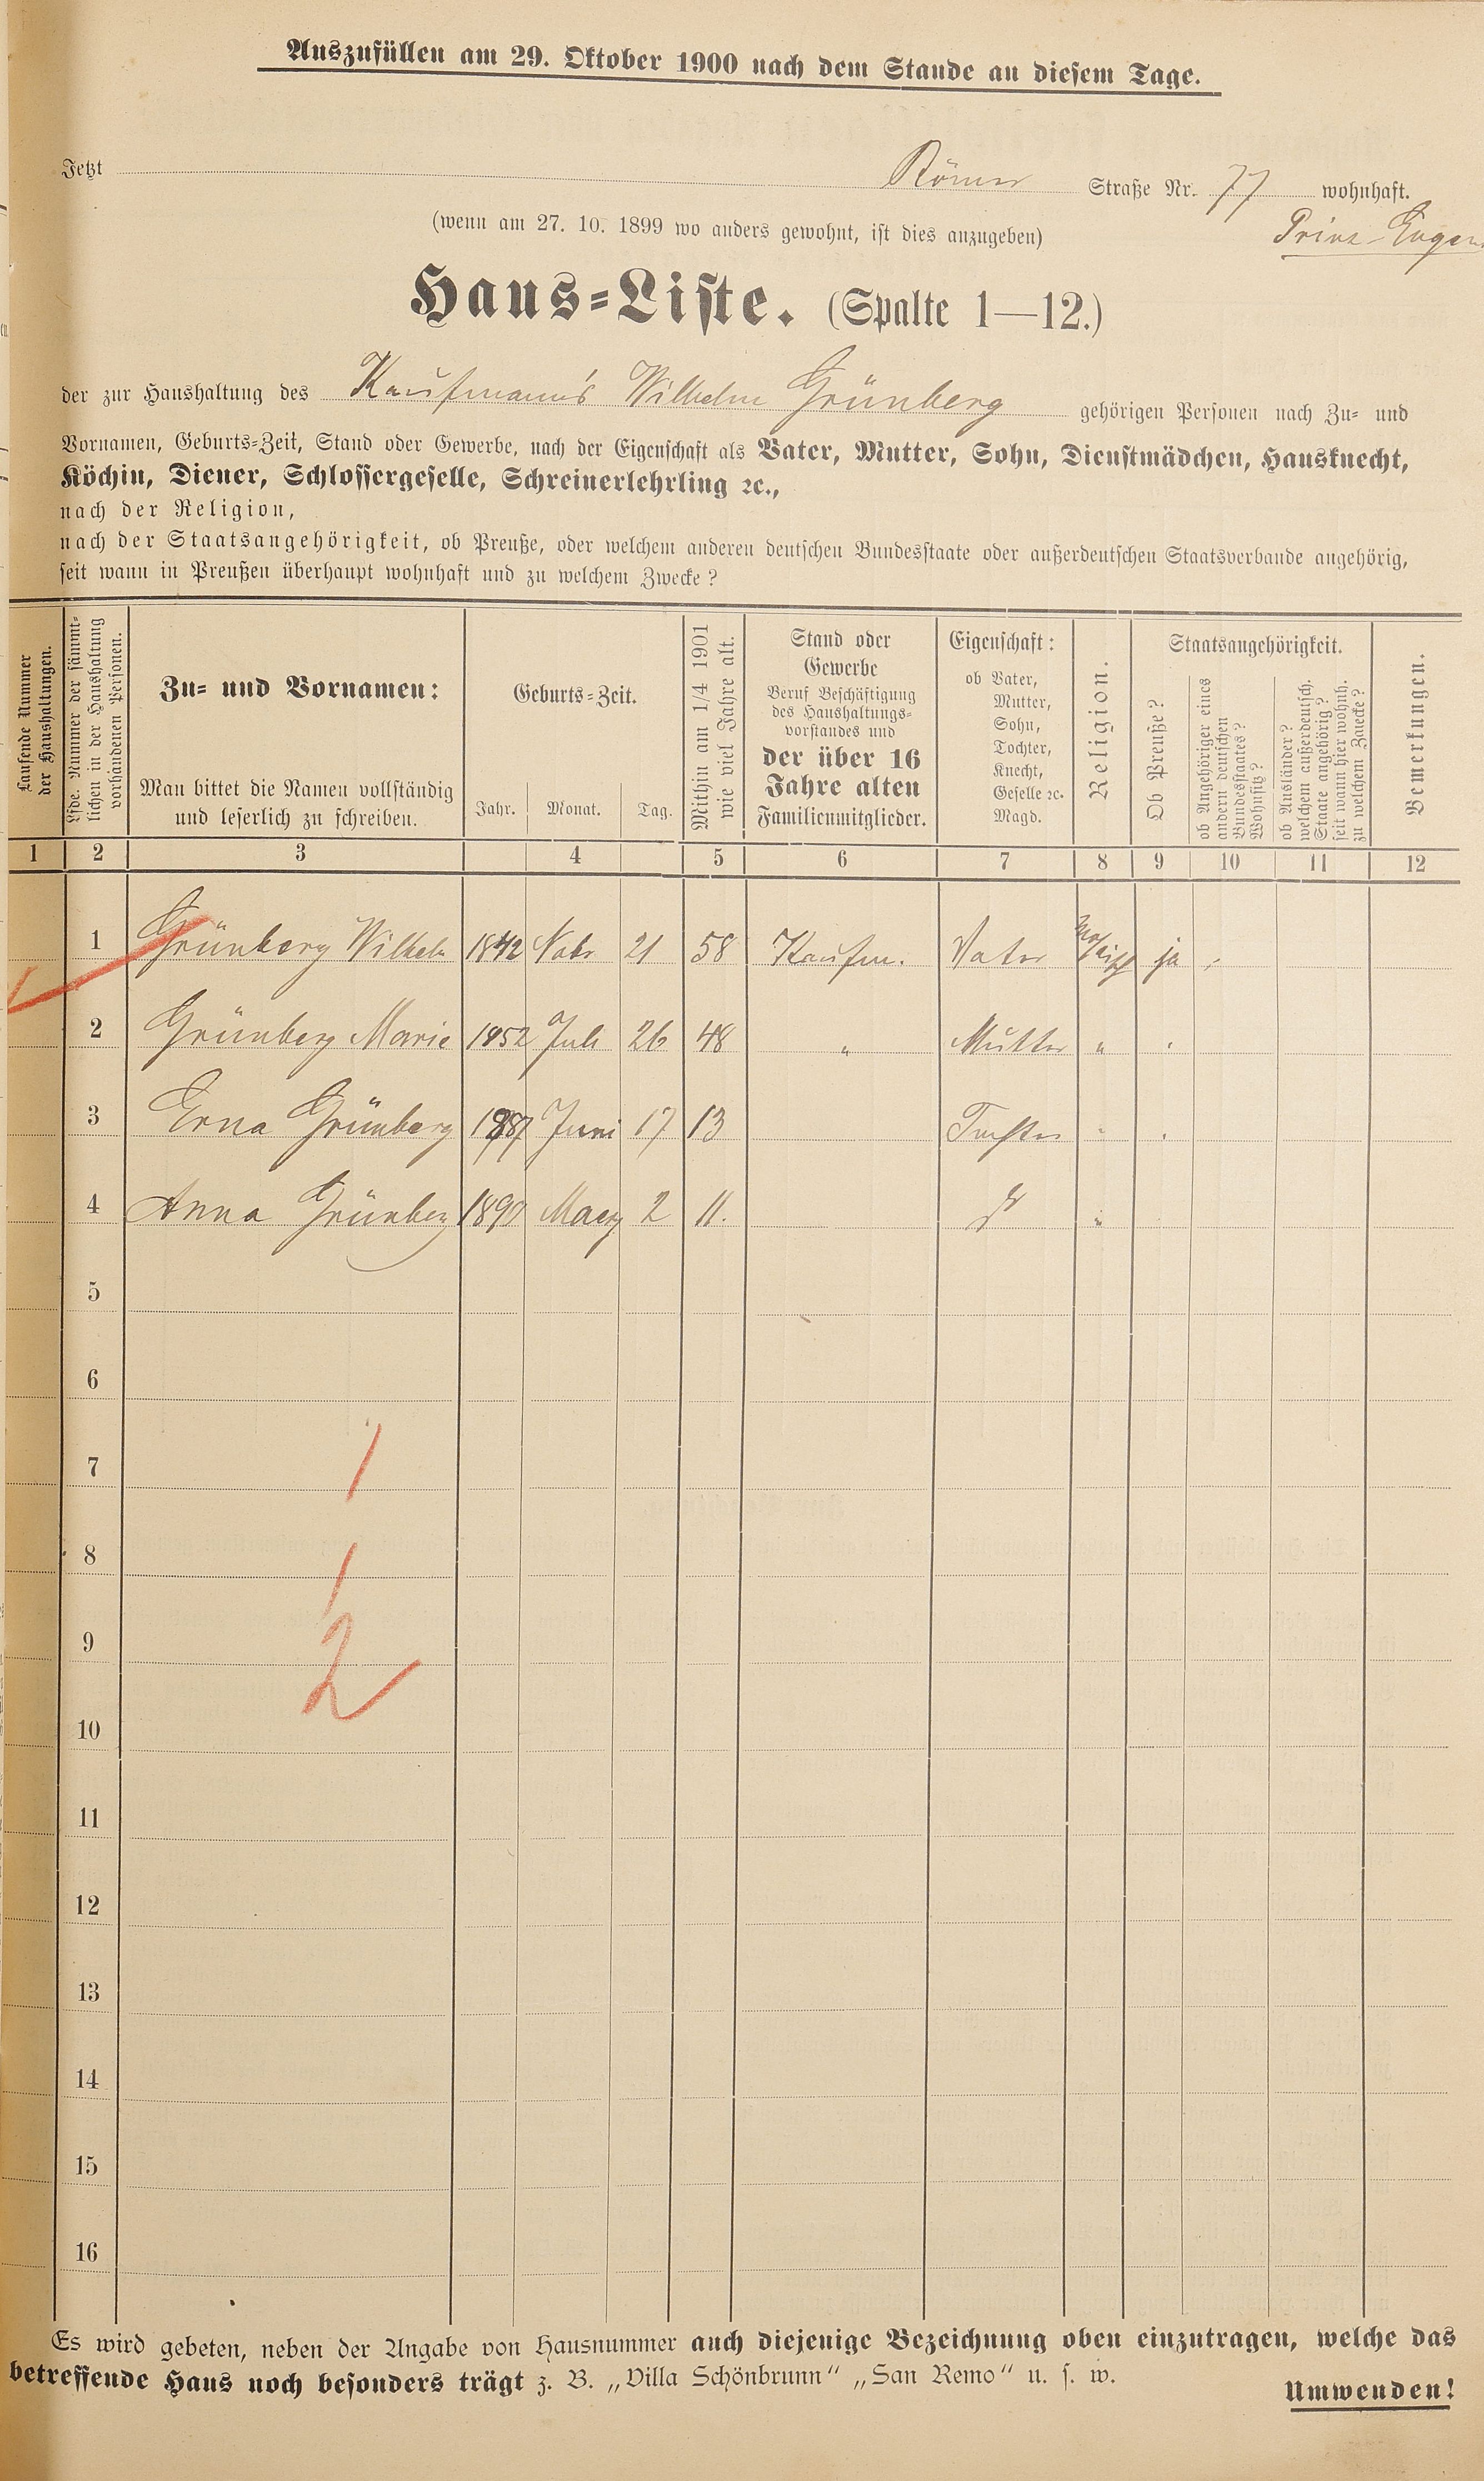 Auszufüllen am 29. Oktober 1900 nach dem Stande an diesem Tage.
Jetzt Römer Straße Nr. 77 wohnhaft.
(wenn am 27. 10. 1899 wo anders gewohnt, ist dies anzugeben) Prinz-Eugen
Haus-Liste. (Spalte 1—12.)
der zur Haushaltung des Kaufmann's Wilhelm Grünberg gehörigen Personen nach Zu- und
Vornamen, Geburts-Zeit, Stand oder Gewerbe, nach der Eigenschaft als Vater, Mutter, Sohn, Dienstmädchen, Hausknecht,
Köchin, Diener, Schlossergeselle, Schreinerlehrling ꝛc.,
nach der Religion,
nach der Staatsangehörigkeit, ob Preuße, oder welchem anderen deutschen Bundesstaate oder außerdeutschen Staatsverbande angehörig,
seit wann in Preußen überhaupt wohnhaft und zu welchem Zwecke?
Laufende Nummer
der Haushaltungen.
Lfde. Nummer der sämmt-
lichen in der Haushaltung
vorhandenen Personen.
Zu- und Vornamen:
Man bittet die Namen vollständig
und leserlich zu schreiben.
Geburts-Zeit.
Jahr. Monat. Tag.
Mithin am 1/4 1901
wie viel Jahre alt.
Stand oder
Gewerbe
Beruf Beschäftigung
des Haushaltungs-
vorstandes und
der über 16
Jahre alten
Familienmitglieder.
Eigenschaft:
ob Vater,
Mutter,
Sohn,
Tochter,
Knecht,
Geselle ꝛc.
Magd.
Religion.
Staatsangehörigkeit.
Ob Preuße?
ob Angehöriger eines
andern deutschen
Bundesstaates?
Wohnsitz?
ob Ausländer?
welchem außerdeutsch.
Staate angehörig?
seit wann hier wohnh.
zu welchem Zwecke?
Bemerkungen.
1 2 3 4 5 6 7 8 9 10 11 12
1 Grünberg Wilhelm 1842 Nobr 21 58 Kaufm. Vater ja
2 Grünberg Marie 1852 Juli 26 48 " Mutter "
3 Erna Grünberg 1887 Juni 17 13 Tochter "
4 Anna Grünberg 1890 Maerz 2 11. "
5
6
7 1
8 1
9 2
10
11
12
13
14
15
16
Es wird gebeten, neben der Angabe von Hausnummer auch diejenige Bezeichnung oben einzutragen, welche das
betreffende Haus noch besonders trägt z. B. „Villa Schönbrunn“ „San Remo“ u. s. w.
Umwenden!